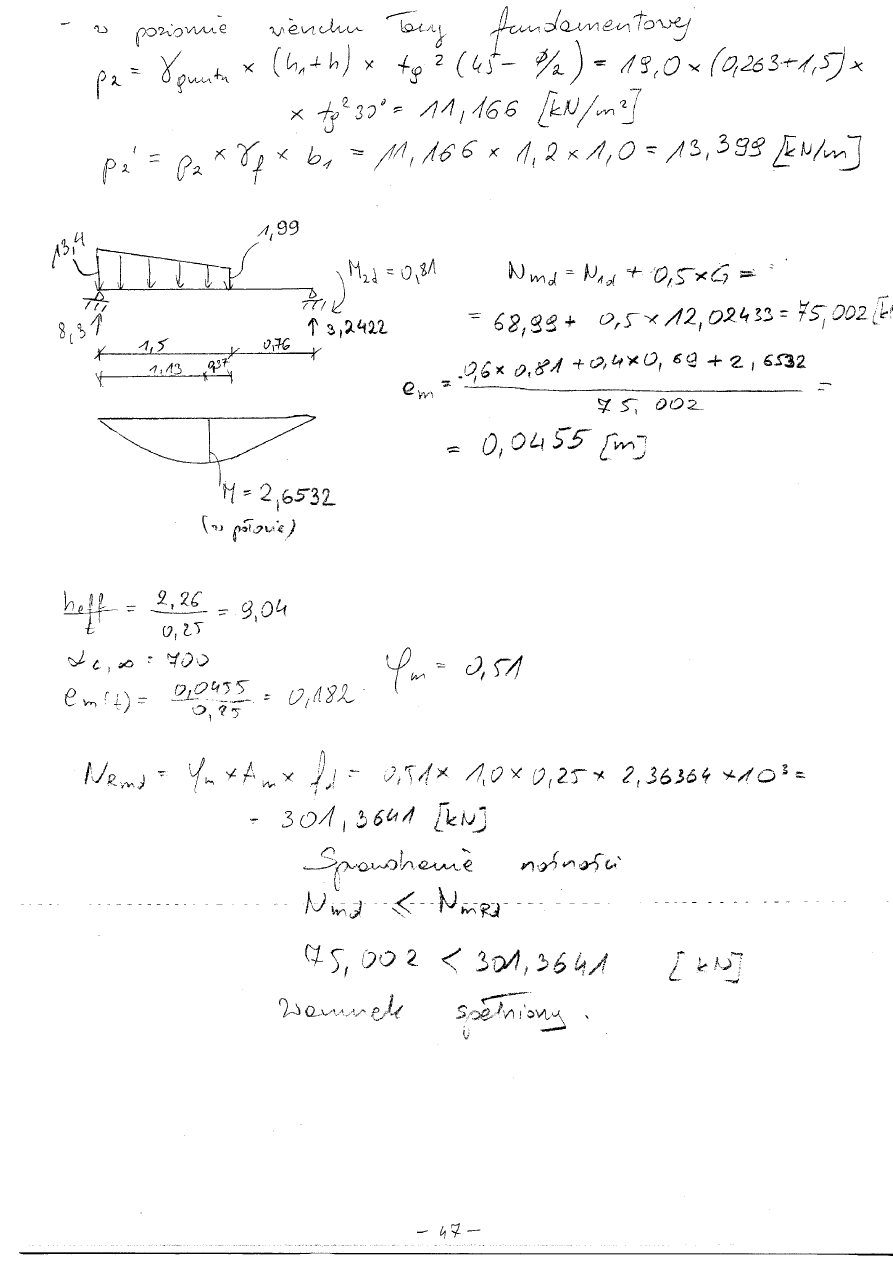 - w poziomie wierzchu ławy fundamentowej
p2 = γgruntu × (h1+h) × tg² (45 - φ/2) = 19,0 × (0,263+1,5) ×
× tg² 30° = 11,166 [kN/m²]
p2' = p2 × γf × b1 = 11,166 × 1,2 × 1,0 = 13,399 [kN/m]
13,4
1,99
M2d = 0,81
8,3
3,2422
1,5
0,76
1,13
0,37
M = 2,6532
(w połowie)
Nmd = N1d + 0,5 × G =
= 68,99 + 0,5 × 12,02433 = 75,002 [k
em = 0,6 × 0,81 + 0,4 × 0,69 + 2,6532 / 75,002 =
= 0,0455 [m]
heff / t = 2,26 / 0,25 = 9,04
αc,∞ = 700
em(t) = 0,0455 / 0,25 = 0,182
φm = 0,51
NRmd = φm × Am × fd = 0,51 × 1,0 × 0,25 × 2,36364 × 10³ =
= 301,3641 [kN]
Sprawdzenie nośności
Nmd < NmRd
75,002 < 301,3641 [kN]
Warunek spełniony.
- 47 -